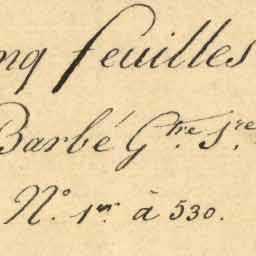 nq feuilles
Barbé Gtre 1re
N° 1er à 530.